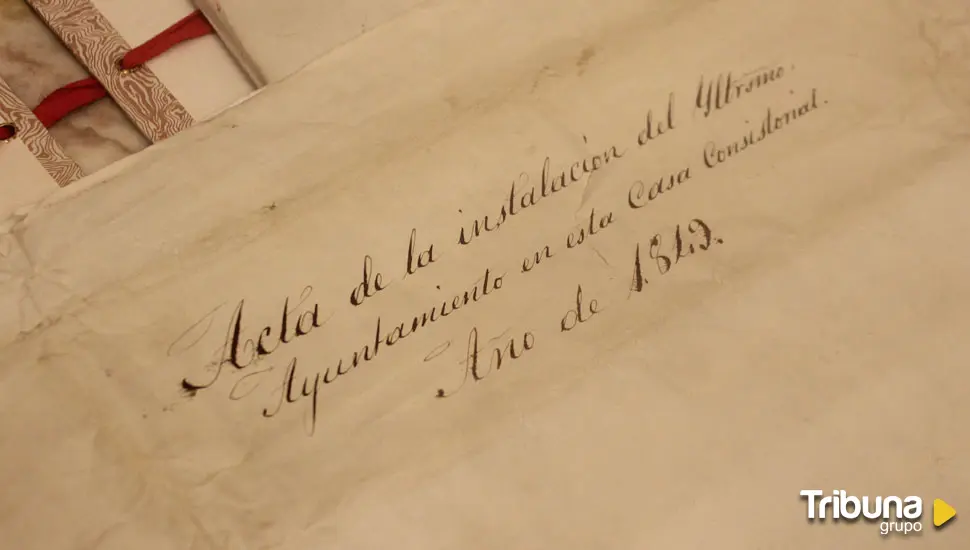 Acta de la instalación del Yltrsmo.
Ayuntamiento en esta Casa Consistorial.
Año de
Tribuna
grupo